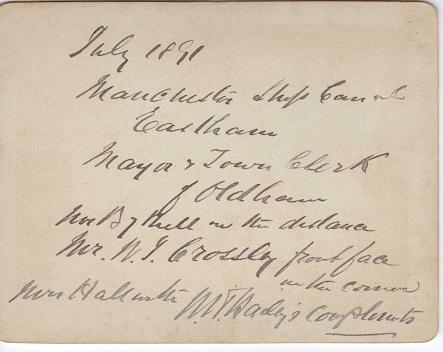 July 1891
Manchester Ship Canal
Eastham
Mayor & Town Clerk
of Oldham
in the distance
Mr. W. J. Crossley front face
in the corner
Mrs with Mr. compliments